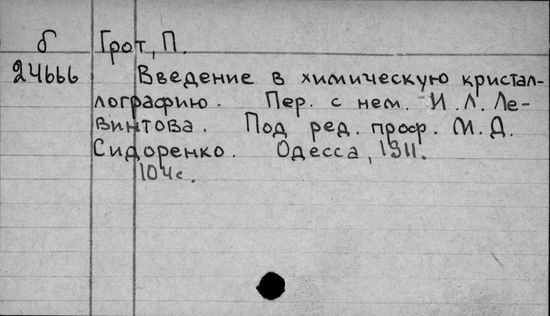 б Грот, П.
24666 Введение в химическую кристал-
лографию. Пер. с нем. И. Л. Ле-
винтова. Под ред. проф. М. Д.
Сидоренко. Одесса, 1911.
104 с.